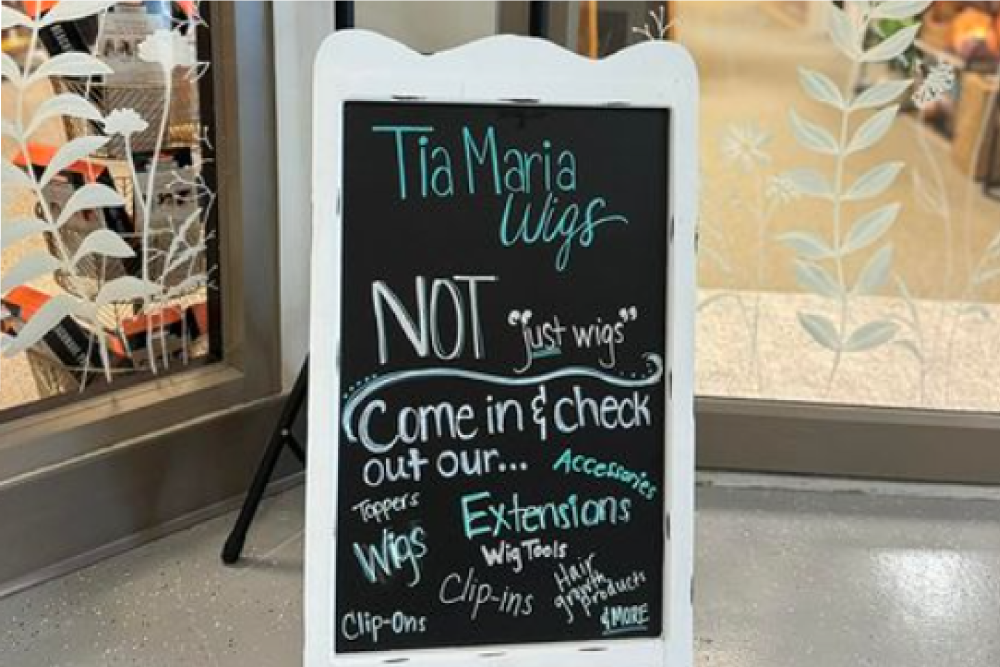 Tia Maria
Wigs
NOT "just wigs"
Come in & check
out our...
Accessories
Toppers
Extensions
Wigs
Wig Tools
Clip-ins
Hair
growth
products
Clip-Ons
& MORE